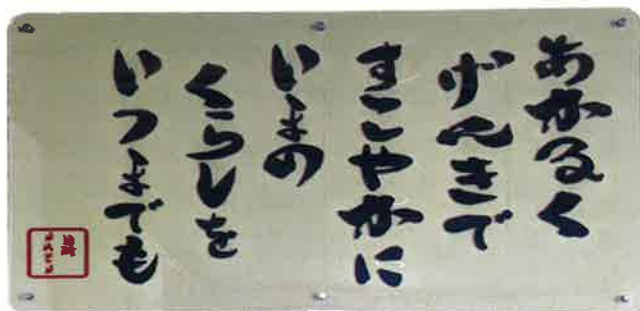 あかるく
げんきで
すこやかに
いまの
くらしを
いつまでも